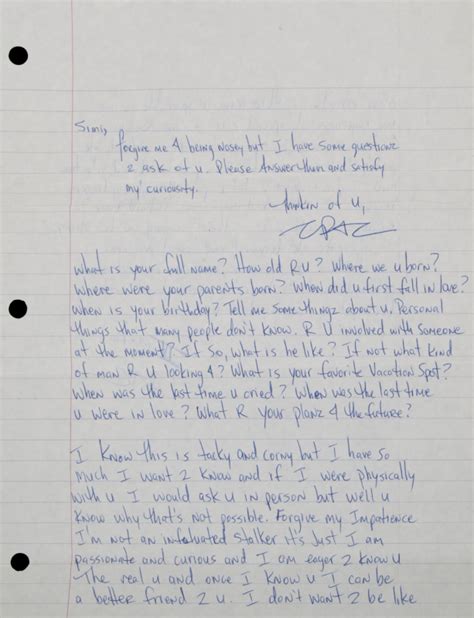 Simi,
forgive me 4 being nosey but I have some questionz
2 ask of u. Please Answer them and satisfy
my curiousity.
thinkin of u,
What is your full name? How old R U? Where we u born?
Where were your parents born? When did u first fall in love?
When is your birthday? Tell me some thingz about u. Personal
things that many people don't know. R U involved with someone
at the moment? If So, what is he like? If not what kind
of man R u looking 4? What is your favorite Vacation Spot?
When was the last time u cried? When was the last time
u were in love? What R your planz 4 the future?
I Know this is tacky and corny but I have so
much I want 2 know and if I were physically
with u I would ask u in person but well u
know why that's not possible. Forgive my Impatience
I'm not an infatuated stalker it's Just I am
passionate and curious and I am eager 2 know u
The real u and once I know u I can be
a better friend 2 u. I don't want 2 be like